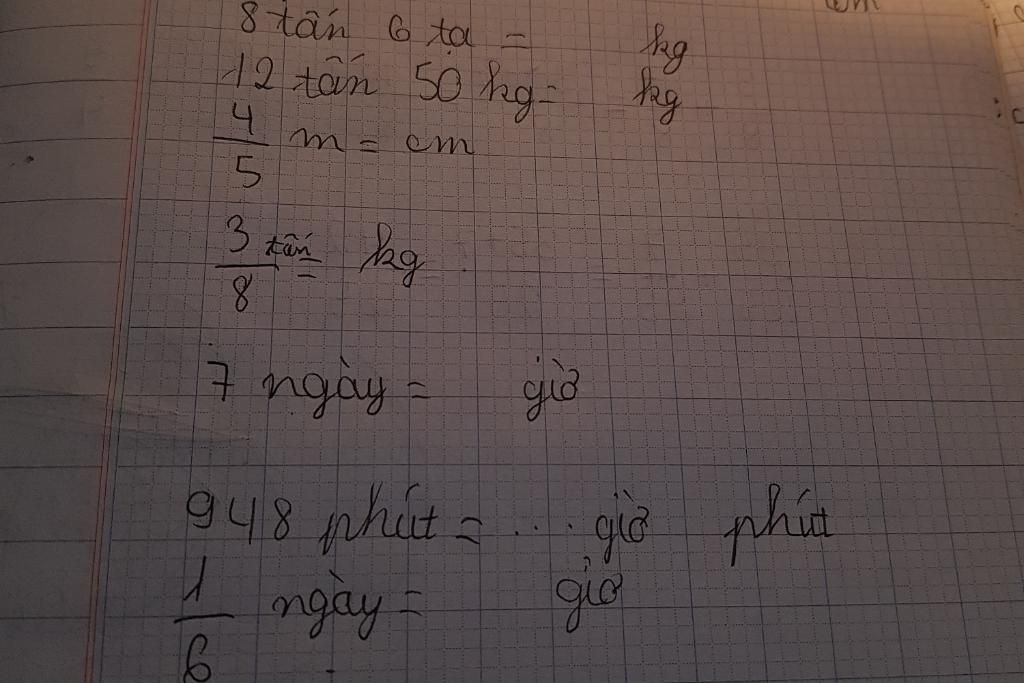 8 tấn 6 tạ = kg
12 tấn 50 kg = kg
4/5 m = cm
3/8 tấn = kg
7 ngày = giờ
948 phút = ... giờ phút
1/6 ngày = giờ